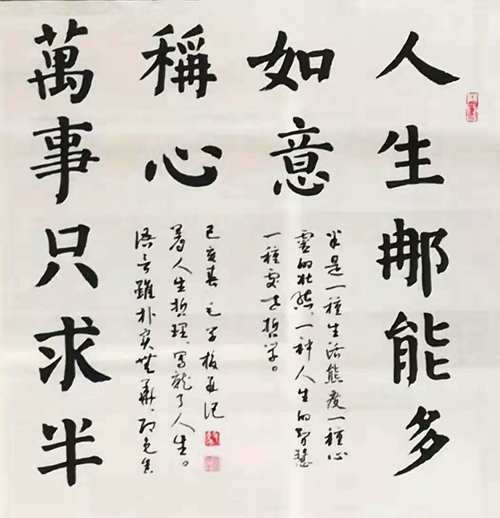 人生那能多
如意
半是一種生活態度一種心
靈的狀態,一种人生的智慧
一種處世哲学。
萬事只求半
稱心
語言雖朴实無華,却包含
着人生哲理,寫就了人生。
己亥春